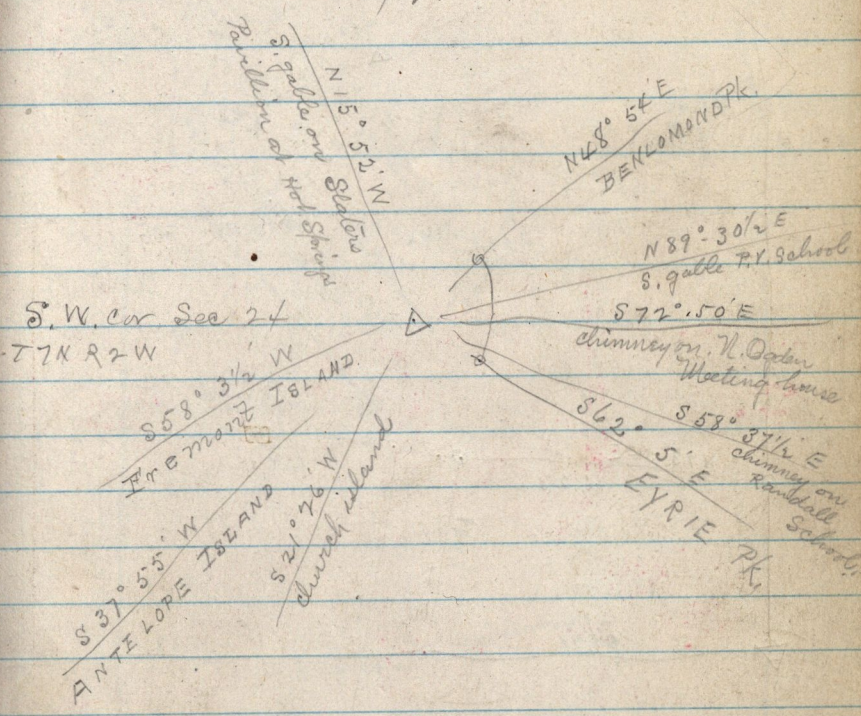 N 15° 52' W
S. gable on Slaters
Pavillion at Hot Springs
N 48° 54' E
BENLOMOND Pk.
N 89° - 30 1/2 E
S. gable P.V. School
S 72° . 50' E
chimney on N. Ogden
Meeting house
S 58° 37 1/2 E
chimney on
Randall
School.
S 62° 5' E
EYRIE Pk.
S. W. cor Sec 24
T 7 N R 2 W
S 58° 3 1/2' W
Fremont ISLAND
S 21° 26' W
church island
S 37° 55' W
ANTELOPE ISLAND